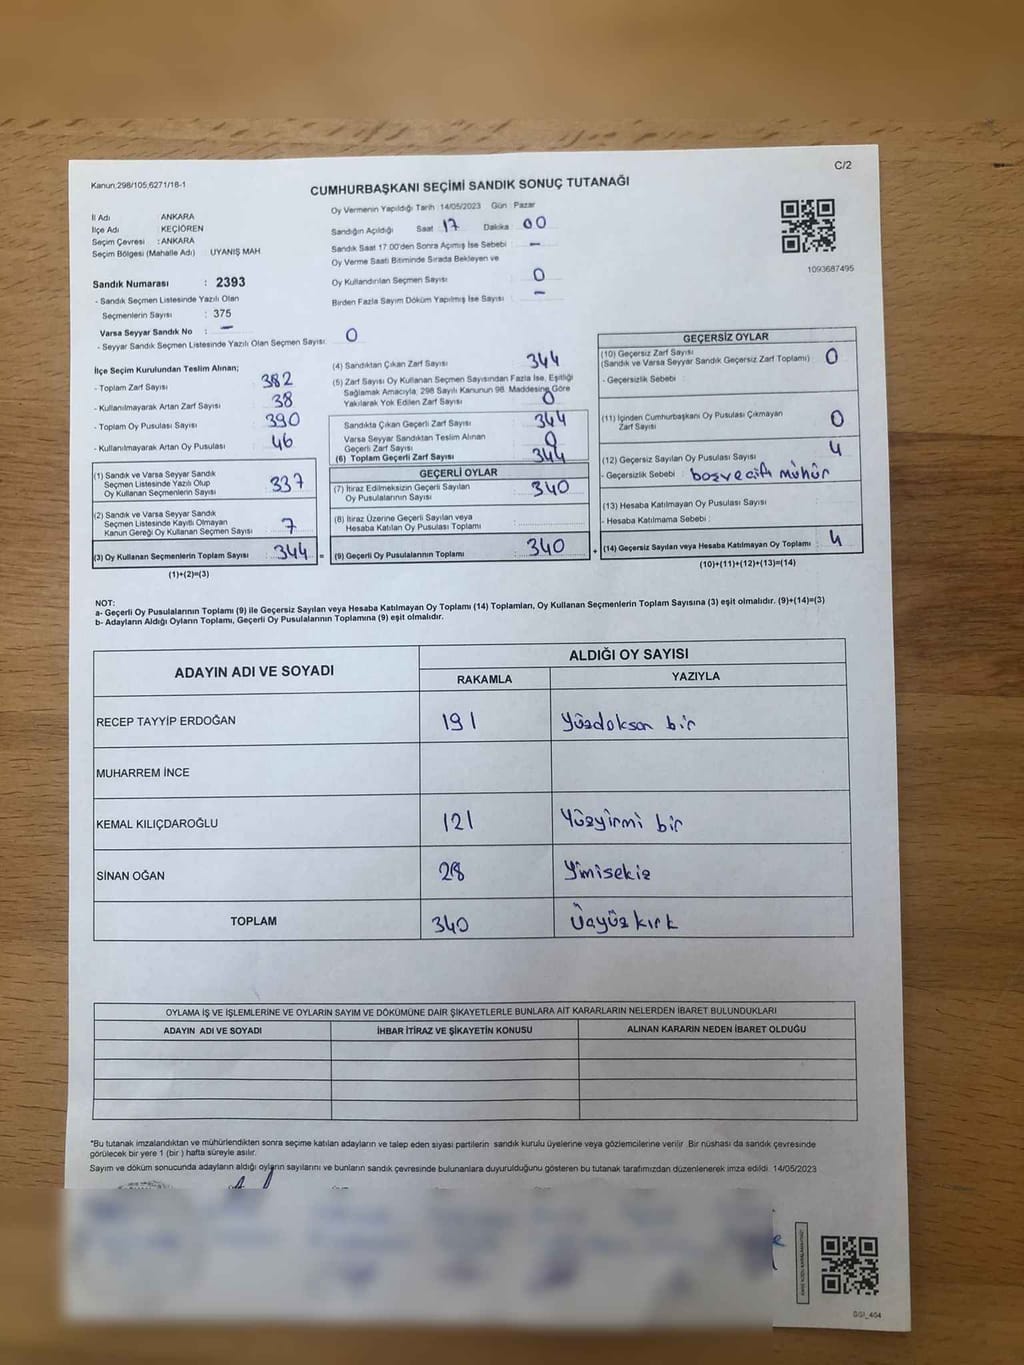 C/2
Kanun;298/105,6271/18-1
CUMHURBAŞKANI SEÇİMİ SANDIK SONUÇ TUTANAĞI
İl Adı : ANKARA
İlçe Adı : KEÇİÖREN
Seçim Çevresi : ANKARA
Seçim Bölgesi (Mahalle Adı) : UYANIŞ MAH
Sandık Numarası : 2393
- Sandık Seçmen Listesinde Yazılı Olan
Seçmenlerin Sayısı : 375
Varsa Seyyar Sandık No : –
- Seyyar Sandık Seçmen Listesinde Yazılı Olan Seçmen Sayısı: 0
Oy Vermenin Yapıldığı Tarih :14/05/2023 Gün : Pazar
Sandığın Açıldığı Saat : 17 Dakika : 00
Sandık Saat 17:00'den Sonra Açımış İse Sebebi : –
Oy Verme Saati Bitiminde Sırada Bekleyen ve
Oy Kullandırılan Seçmen Sayısı : 0
Birden Fazla Sayım Döküm Yapılmış İse Sayısı : –
1093687495
İlçe Seçim Kurulundan Teslim Alınan;
- Toplam Zarf Sayısı : 382
- Kullanılmayarak Artan Zarf Sayısı : 38
- Toplam Oy Pusulası Sayısı : 390
- Kullanılmayarak Artan Oy Pusulası : 46
(1) Sandık ve Varsa Seyyar Sandık
Seçmen Listesinde Yazılı Olup
Oy Kullanan Seçmenlerin Sayısı : 337
(2) Sandık ve Varsa Seyyar Sandık
Seçmen Listesinde Kayıtlı Olmayan
Kanun Gereği Oy Kullanan Seçmen Sayısı : 7
(3) Oy Kullanan Seçmenlerin Toplam Sayısı : 344 =
(1)+(2)=(3)
(4) Sandıktan Çıkan Zarf Sayısı : 344
(5) Zarf Sayısı Oy Kullanan Seçmen Sayısından Fazla İse, Eşitliği
Sağlamak Amacıyla; 298 Sayılı Kanunun 98. Maddesine Göre
Yakılarak Yok Edilen Zarf Sayısı : 0
Sandıkta Çıkan Geçerli Zarf Sayısı : 344
Varsa Seyyar Sandıktan Teslim Alınan
Geçerli Zarf Sayısı : 0
(6) Toplam Geçerli Zarf Sayısı : 344
GEÇERLİ OYLAR
(7) İtiraz Edilmeksizin Geçerli Sayılan
Oy Pusulalarının Sayısı : 340
(8) İtiraz Üzerine Geçerli Sayılan veya
Hesaba Katılan Oy Pusulası Toplamı :
(9) Geçerli Oy Pusulalarının Toplamı : 340 +
GEÇERSİZ OYLAR
(10) Geçersiz Zarf Sayısı
(Sandık ve Varsa Seyyar Sandık Geçersiz Zarf Toplamı) : 0
- Geçersizlik Sebebi :
(11) İçinden Cumhurbaşkanı Oy Pusulası Çıkmayan
Zarf Sayısı : 0
(12) Geçersiz Sayılan Oy Pusulası Sayısı : 4
- Geçersizlik Sebebi : boş ve çift mühür
(13) Hesaba Katılmayan Oy Pusulası Sayısı :
- Hesaba Katılmama Sebebi :
(14) Geçersiz Sayılan veya Hesaba Katılmayan Oy Toplamı : 4
(10)+(11)+(12)+(13)=(14)
NOT:
a- Geçerli Oy Pusulalarının Toplamı (9) ile Geçersiz Sayılan veya Hesaba Katılmayan Oy Toplamı (14) Toplamları, Oy Kullanan Seçmenlerin Toplam Sayısına (3) eşit olmalıdır. (9)+(14)=(3)
b- Adayların Aldığı Oyların Toplamı, Geçerli Oy Pusulalarının Toplamına (9) eşit olmalıdır.
ADAYIN ADI VE SOYADI ALDIĞI OY SAYISI
RAKAMLA YAZIYLA
RECEP TAYYİP ERDOĞAN 191 Yüzdoksan bir
MUHARREM İNCE
KEMAL KILIÇDAROĞLU 121 Yüzyirmi bir
SİNAN OĞAN 28 Yimisekiz
TOPLAM 340 Üçyüz kırk
OYLAMA İŞ VE İŞLEMLERİNE VE OYLARIN SAYIM VE DÖKÜMÜNE DAİR ŞİKAYETLERLE BUNLARA AİT KARARLARIN NELERDEN İBARET BULUNDUKLARI
ADAYIN ADI VE SOYADI İHBAR İTİRAZ VE ŞİKAYETİN KONUSU ALINAN KARARIN NEDEN İBARET OLDUĞU
*Bu tutanak imzalandıktan ve mühürlendikten sonra seçime katılan adayların ve talep eden siyasi partilerin sandık kurulu üyelerine veya gözlemcilerine verilir. Bir nüshası da sandık çevresinde
görülecek bir yere 1 (bir ) hafta süreyle asılır.
Sayım ve döküm sonucunda adayların aldığı oyların sayılarını ve bunların sandık çevresinde bulunanlara duyurulduğunu gösteren bu tutanak tarafımızdan düzenlenerek imza edildi. 14/05/2023
GGI_404